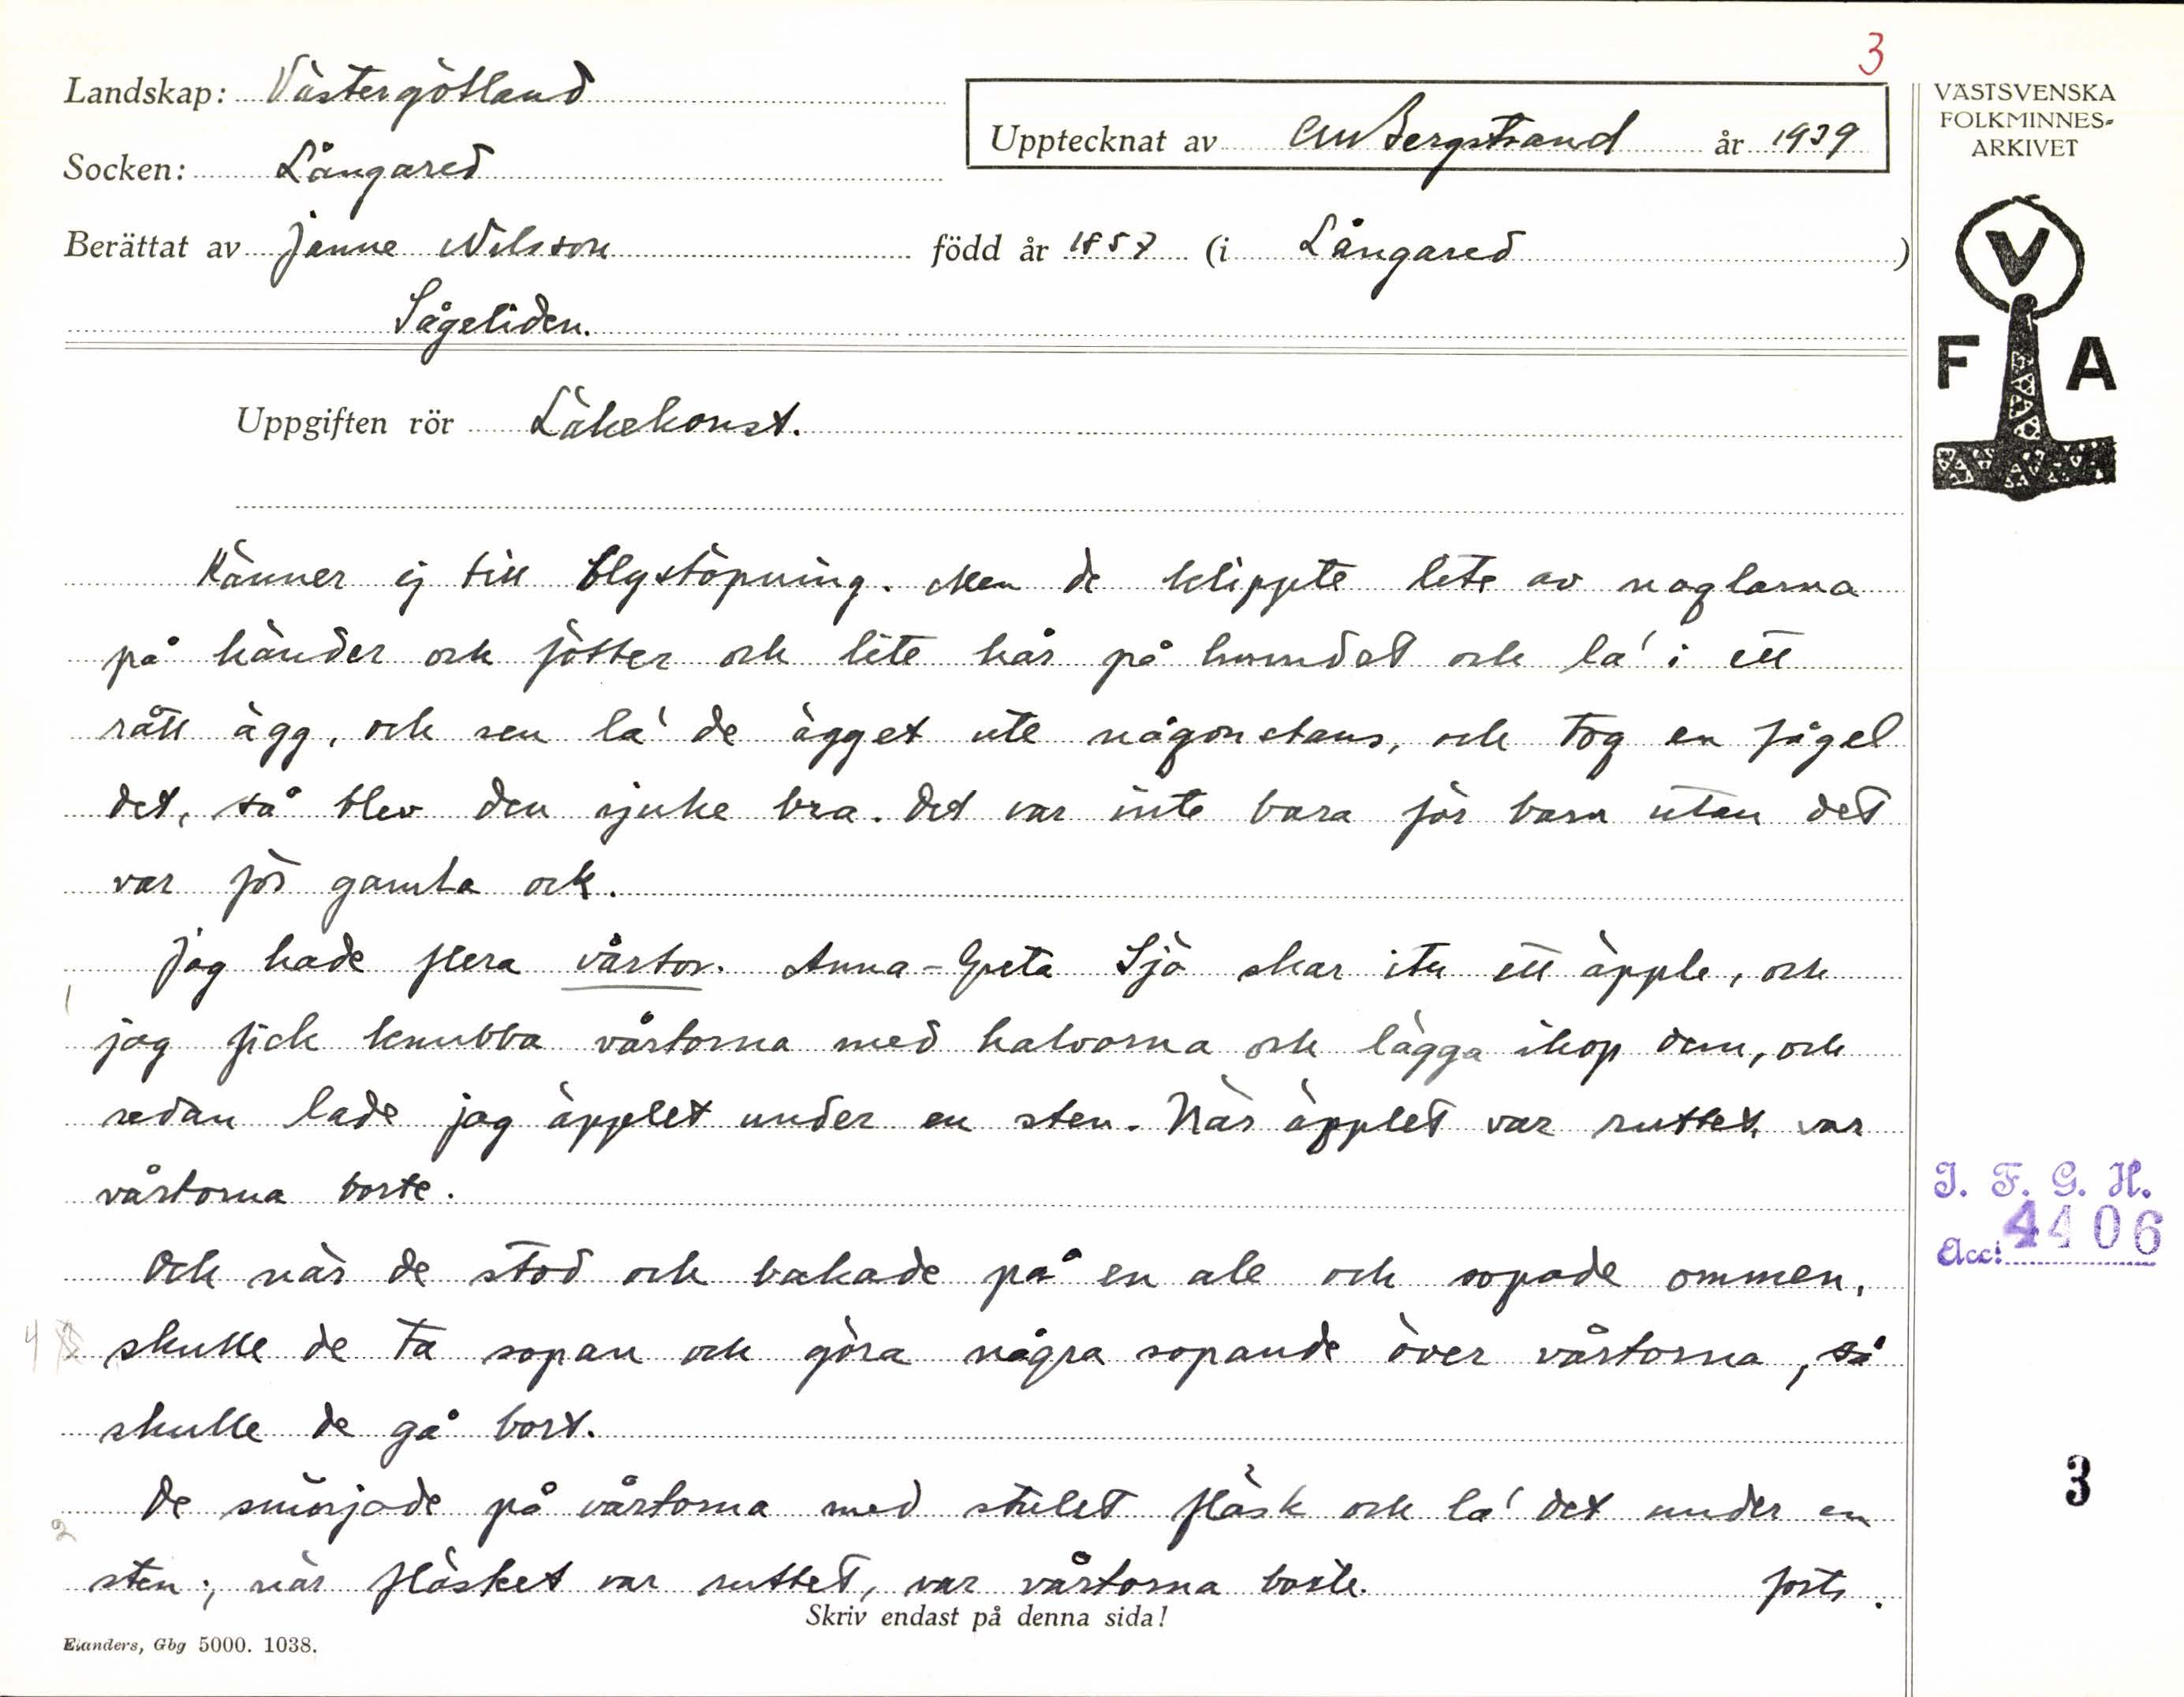 3
Landskap: Västergötland
Upptecknat av CM Bergstrand år 1939
Socken: Långared
Berättat av Janne Nilsson född år 1857 (i Långared)
Sågeliden.
Uppgiften rör Läkekonst.
Känner ej till blystöpning. Men de klippte lite av naglarna
på händer och fötter och lite hår på huvudet och la' i ett
rått ägg, och sen la' de ägget ute någonstans, och tog en fågel
det, så blev den sjuke bra. Det var inte bara för barn utan det
var för gamla ock.
Jag hade flera vårtor. Anna-Greta Sjö skar itu ett äpple, och
1
jag fick knubba vårtorna med halvorna och lägga ihop dem, och
sedan lade jag äpplet under en sten. När äpplet var ruttet, var
vårtorna borte.
Och när de stod och bakade på en ale och sopade ommen,
4 skulle de ta sopan och göra några sopande över vårtorna, så
skulle de gå bort.
De smörjade på vårtorna med stulet fläsk och la' det under en
2
sten; när fläsket var ruttet, var vårtorna borte. forts.
Skriv endast på denna sida!
Elanders, Gbg 5000. 1038.
VÄSTSVENSKA
FOLKMINNES-
ARKIVET
V
F A
I. F. G. H.
Acc: 4406
3